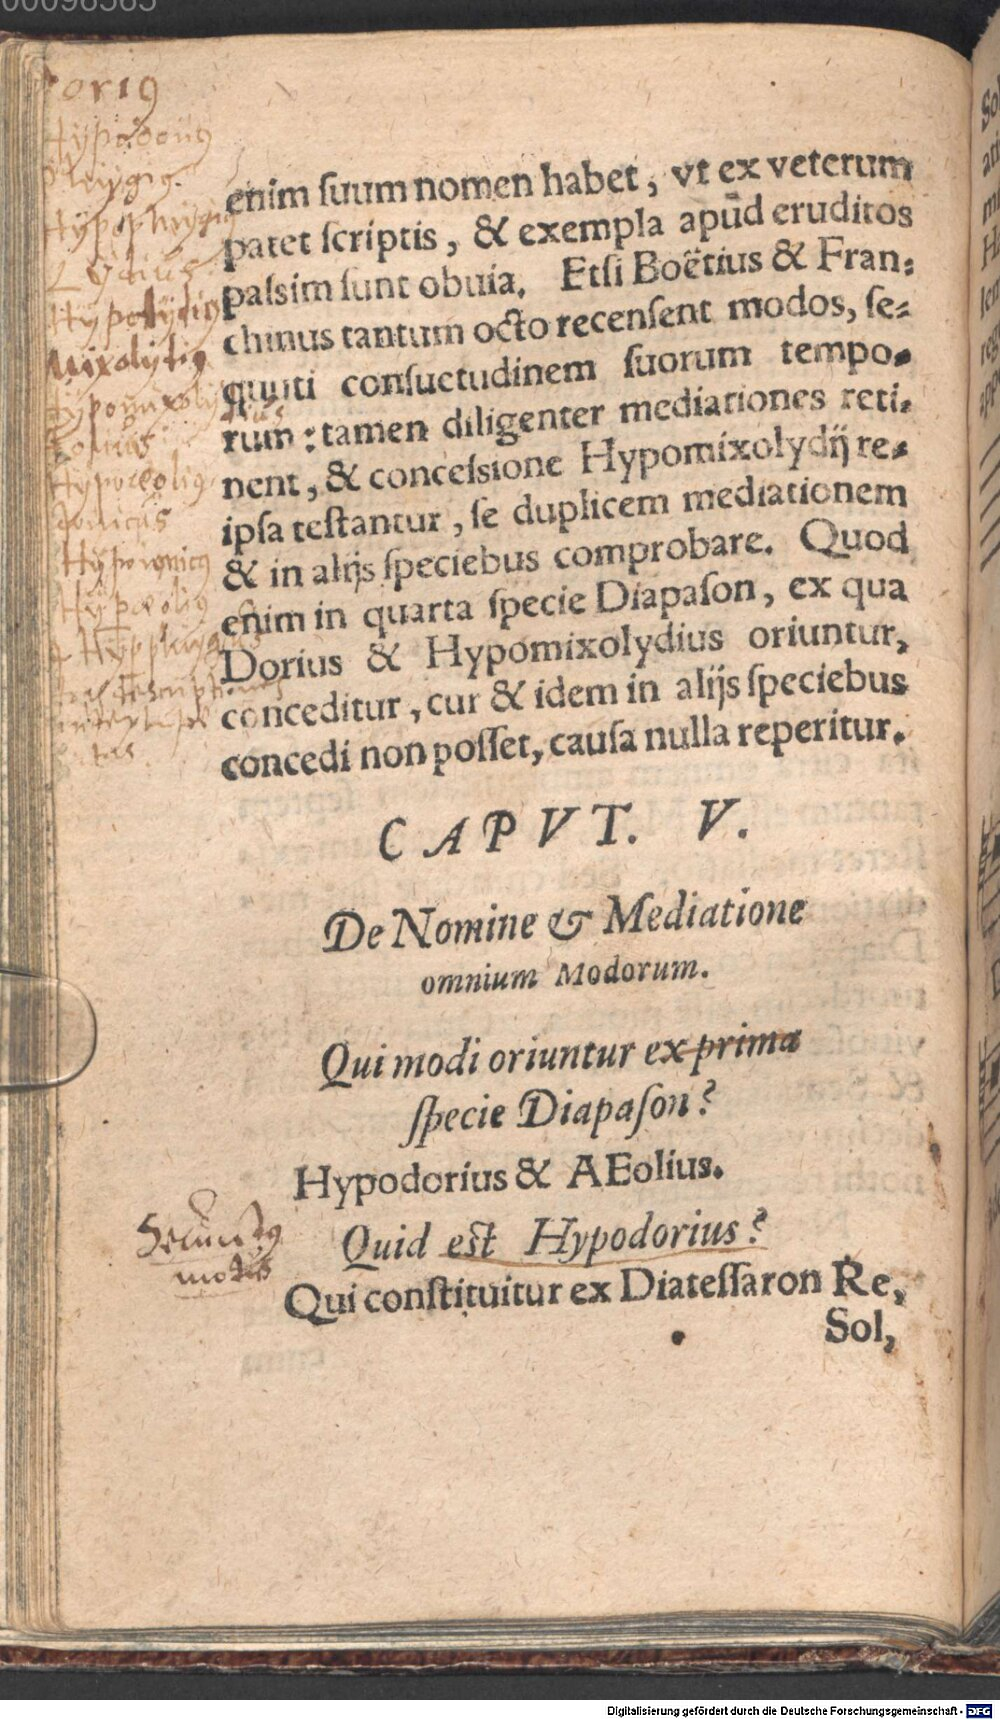 00098585
enim suum nomen habet, vt ex veterum
patet scriptis, & exempla apud eruditos
passim sunt obuia. Etsi Boëtius & Fran-
chinus tantum octo recensent modos, se-
quuti consuetudinem suorum tempo-
rum: tamen diligenter mediationes reti-
nent, & concessione Hypomixolydij re-
ipsa testantur, se duplicem mediationem
& in alijs speciebus comprobare. Quod
enim in quarta specie Diapason, ex qua
Dorius & Hypomixolydius oriuntur,
conceditur, cur & idem in alijs speciebus
concedi non posset, causa nulla reperitur.
CAPVT. V.
De Nomine & Mediatione
omnium Modorum.
Qui modi oriuntur ex prima
specie Diapason?
Hypodorius & AEolius.
Quid est Hypodorius?
Qui constituitur ex Diatessaron Re,
Sol,
Hypophrygi
Lydius
Hypolydi9
Mixolydi9
Hypoionic9
Secund9
modus
Digitalisierung gefördert durch die Deutsche Forschungsgemeinschaft - DFG